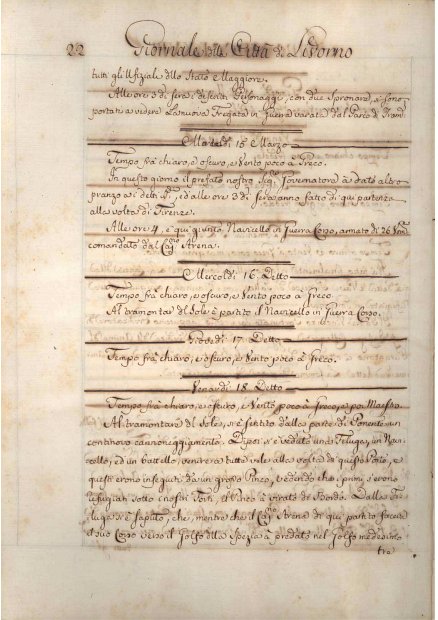 22 Giornale della Città di Livorno
tutti gli Ufiziali dello Stato e Maggiore.
Alle ore 5 di sera i descritti Personaggi, con due Speronare, si sono
portati a vedere la nuova Fregata in guerra varata dal Parco di
Martedì 15 Marzo
Tempo frà chiaro, e oscuro, e Vento poco à Greco.
In questo giorno il prefato nostro Sigre Governatore à dato altro
pranzo a i detti ed alle ore 3 di sera anno fatto di qui partenza
alla volta di Firenze.
Alle ore 4, è qui giunto Navicello in Guerra Corso, armato di 26
comandato dal Capno Arena.
Mercoldì 16 Detto
Tempo frà chiaro, e oscuro, e Vento poco à Greco.
Al tramontar del Sole è partito il Navicello in Guerra Corso.
Giovedì 17 Detto
Tempo frà chiaro, e oscuro, e Vento poco à Greco.
Venerdì 18 Detto
Tempo frà chiaro, e oscuro, e Vento poco à Greco, e poi Maestro.
Al tramontare del Sole, si è sentito dalla parte di Ponente un
continovo cannoneggiamento. Dipoi si è veduto una Feluga, un Navi
cello, ed un battello, venire a tutte vele alla volta di questo Porto, e
questi erono inseguiti da un grosso Pinco, vedendo che i primi si erono
refugiati sotto i nostri Forti, il Pinco à virato di Bordo. Dalla Fe
luga si è saputo, che, mentre che il Capno Arena di qui partito faceva
il suo Corso verso il Golfo della Spezia à predato nel Golfo medesimo
tre